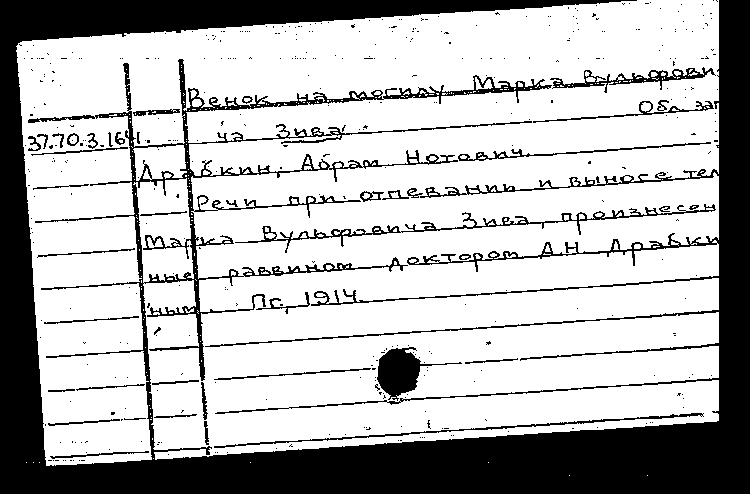 Венок на могилу Марка Вульфови
ча Зива.
Обл. заг
37.70.3.164.
Драбкин, Абрам Нотович.
Речи при отпевании и выносе тел
Марка Вульфовича Зива, произнесен
ные раввином доктором А.Н. Драбки
ным. Пг, 1914